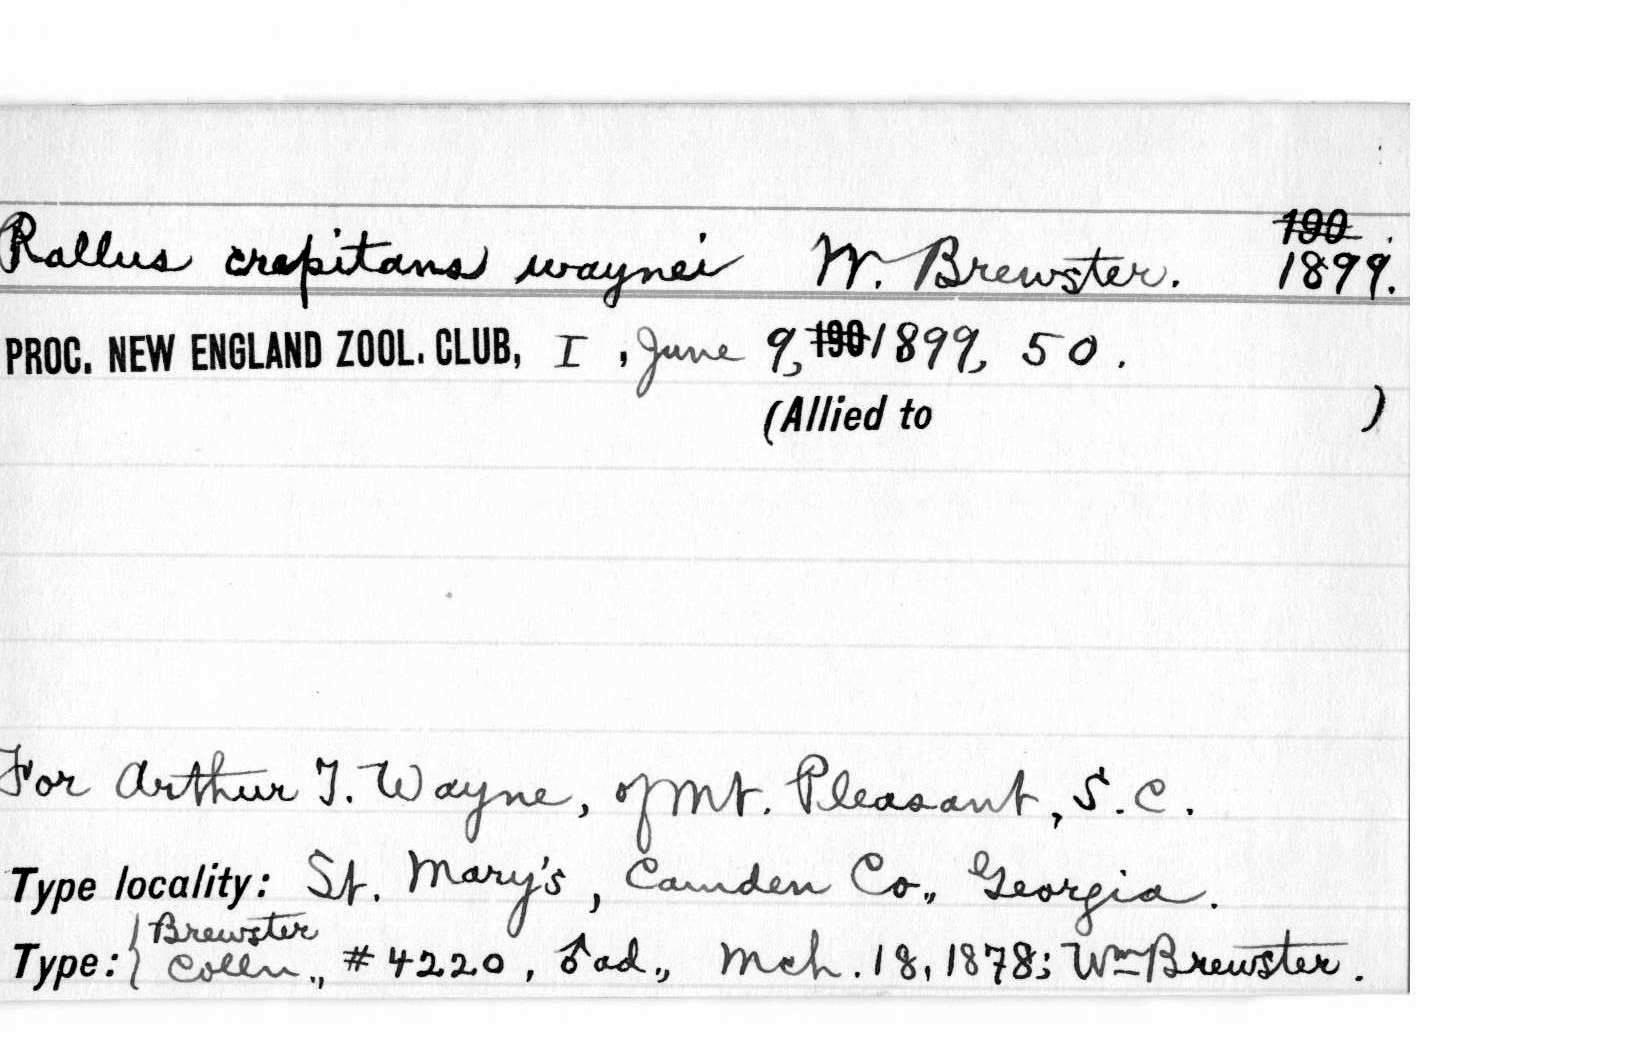 190
Rallus crepitans waynei W. Brewster. 1899.
PROC. NEW ENGLAND ZOOL. CLUB, I, June 9, 190 1899, 50.
(Allied to )
For Arthur T. Wayne, of Mt. Pleasant, S.C.
Type locality: St. Mary's, Camden Co., Georgia.
Type: { Brewster Colln., #4220, ♂ ad., Mch. 18, 1878; Wm Brewster.